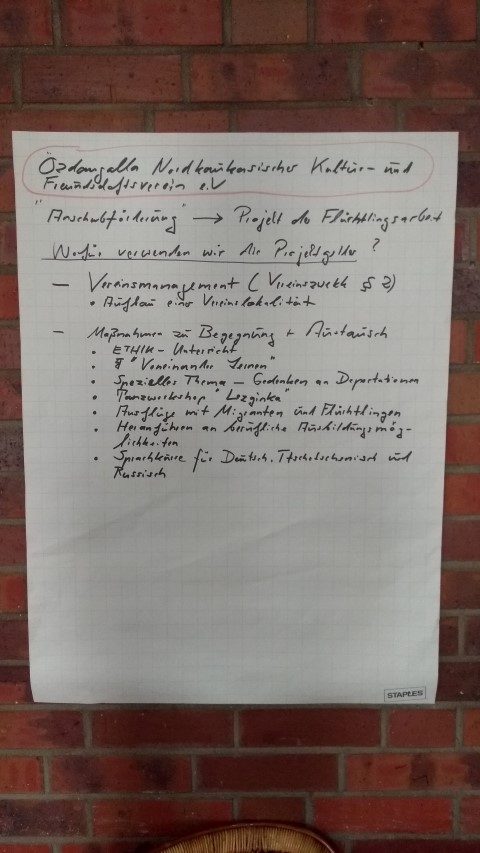 Özdangalla Nordkaukasischer Kultur- und
Freundschaftsverein e.V
"Anschubförderung" → Projekt der Flüchtlingsarbeit
Wofür verwenden wir die Projektgelder ?
— Vereinsmanagement (Vereinszweck § 2)
• Aufbau einer Vereinslokalität
— Maßnahmen zu Begegnung + Austausch
• ETHIK - Unterricht
• "Voneinander Lernen"
• Spezielles Thema — Gedenken an Deportationen
• Tanzworkshop "Lezginka"
• Ausflüge mit Migranten und Flüchtlingen
• Heranführen an berufliche Ausbildungsmög-
lichkeiten
• Sprachkurse für Deutsch, Tschetschenisch und
Russisch
STAPLES